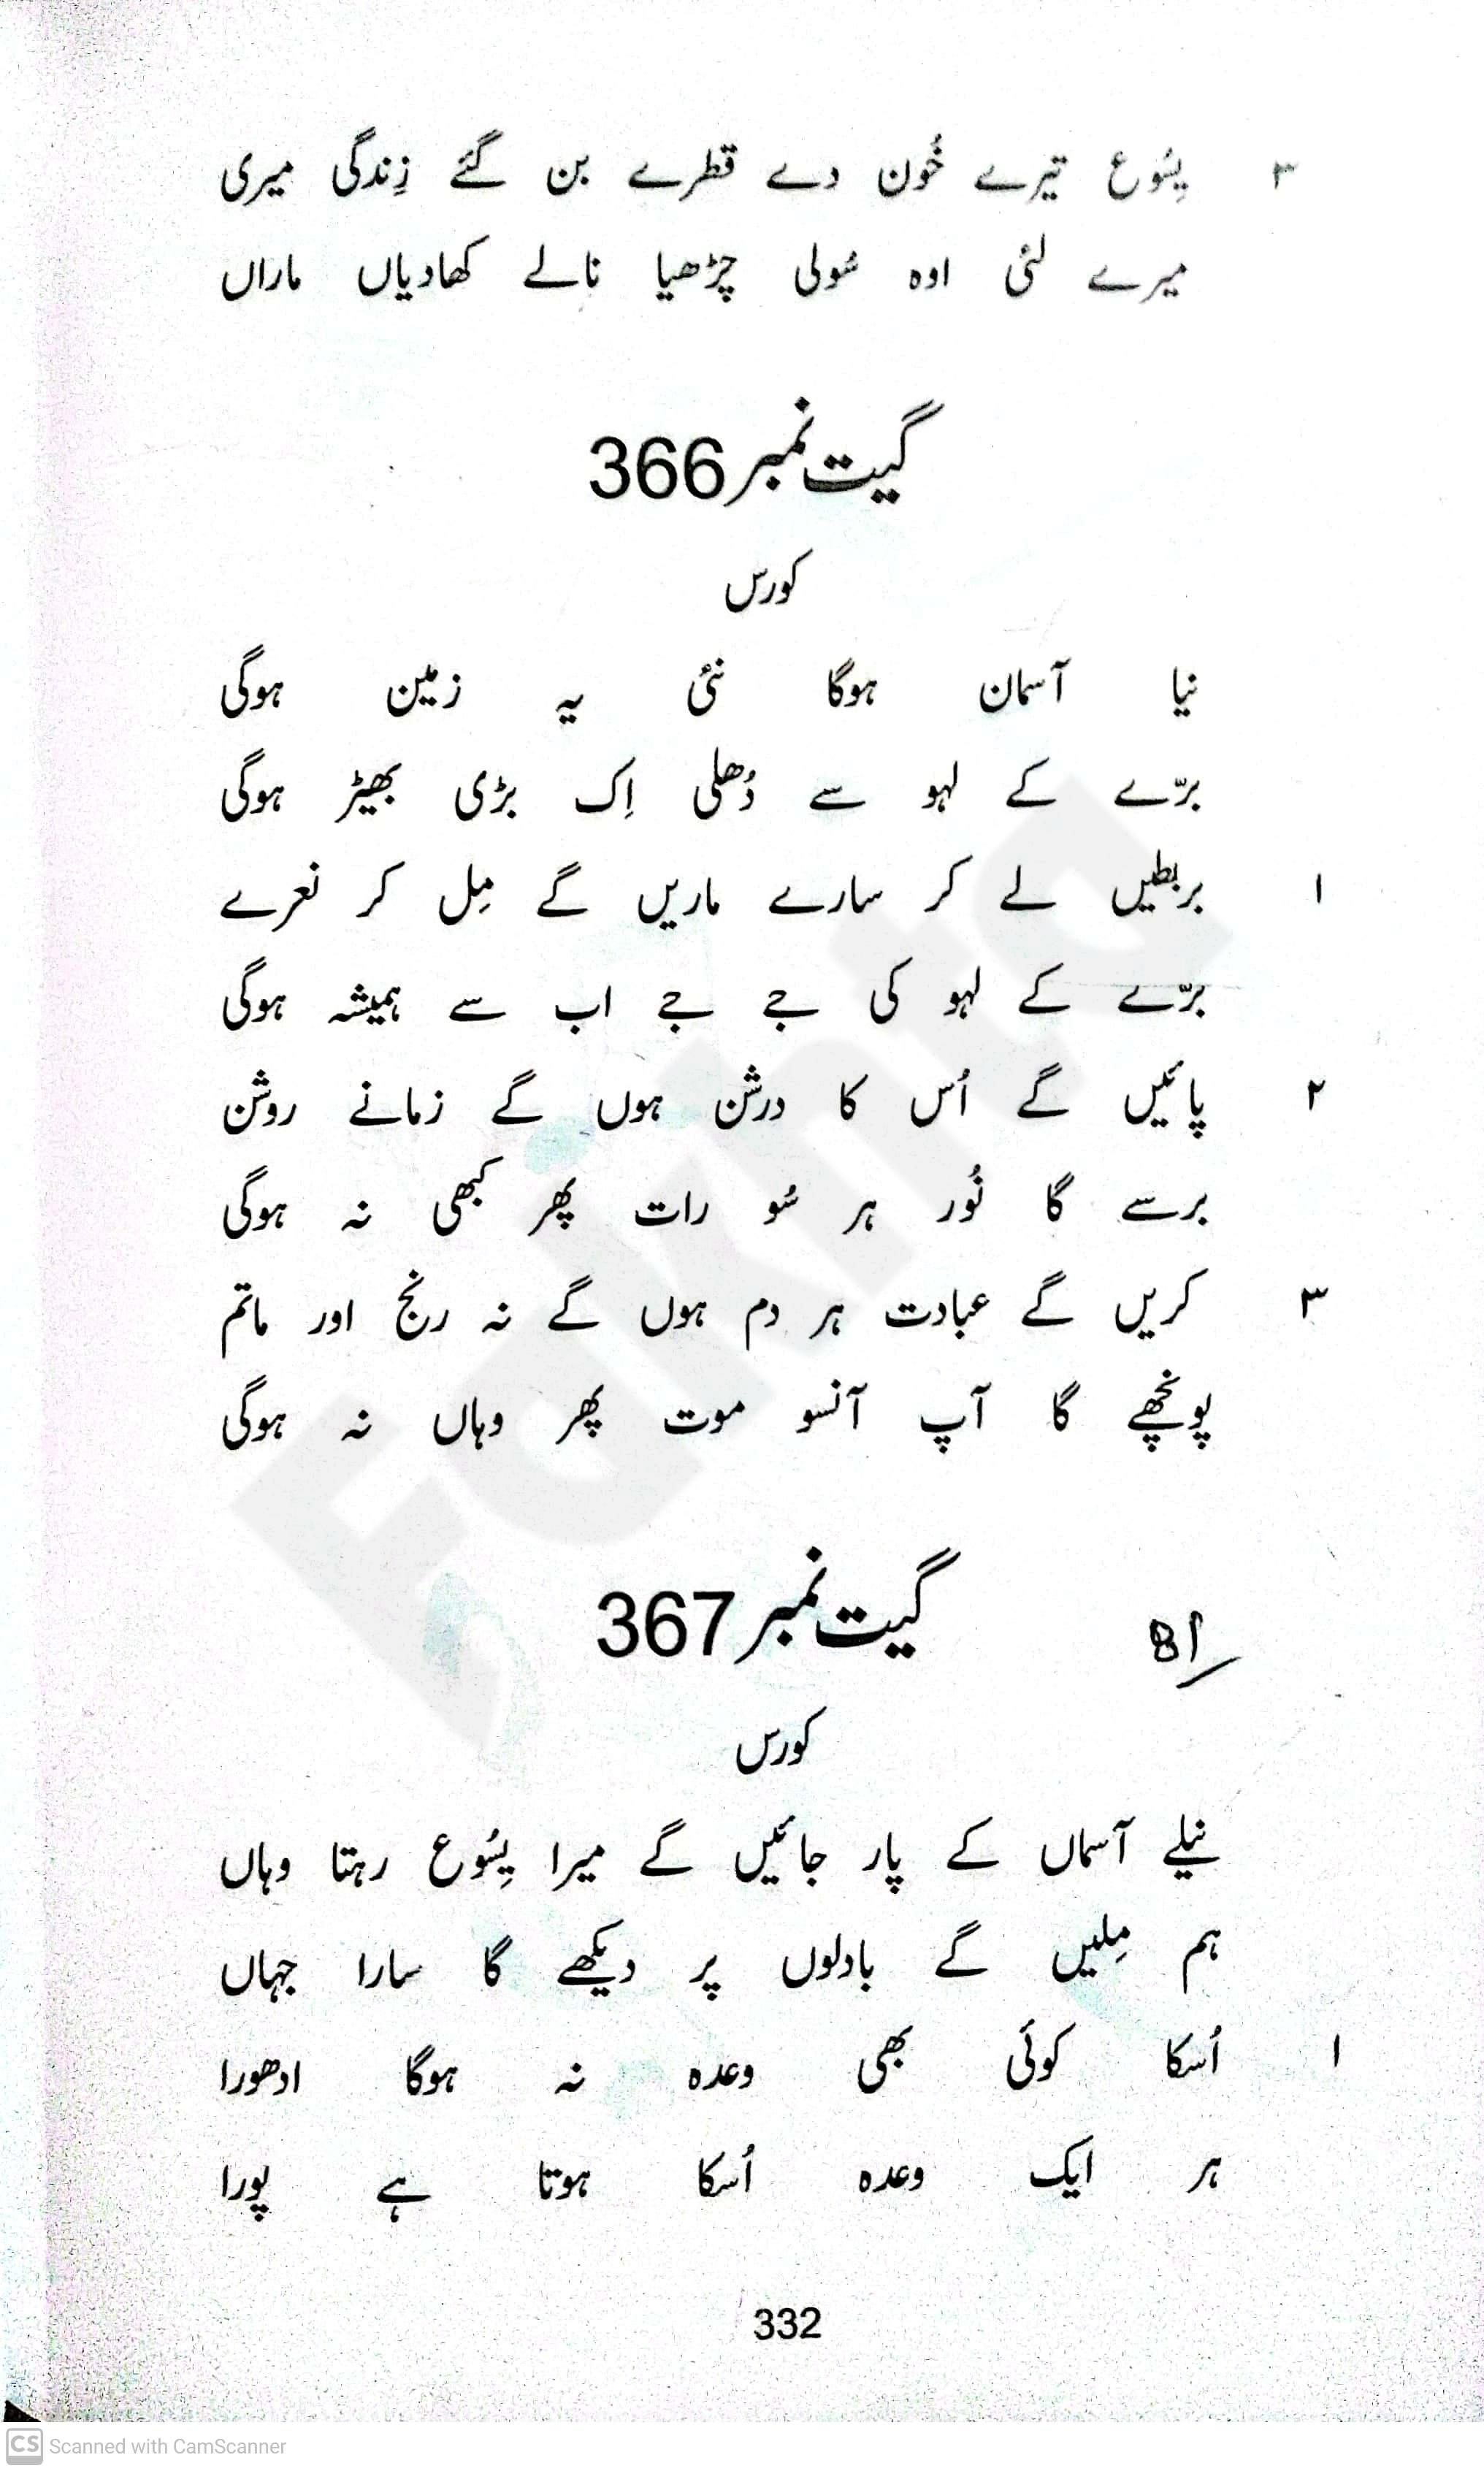 ۳ یِسُوع تیرے خُون دے قطرے بن گئے زِندگی میری
میرے لئی اوہ سُولی چڑھیا نالے کھادیاں ماراں
گیت نمبر 366
کورس
نیا آسمان ہوگا نئی یہ زمین ہوگی
برّے کے لہو سے دُھلی اِک بڑی بھیڑ ہوگی
۱ بربطیں لے کر سارے ماریں گے مِل کر نعرے
برّے کے لہو کی جے جے اب سے ہمیشہ ہوگی
۲ پائیں گے اُس کا درشن ہوں گے زمانے روشن
برسے گا نُور ہر سُو رات پھر کبھی نہ ہوگی
۳ کریں گے عبادت ہر دم ہوں گے نہ رنج اور ماتم
پونچھے گا آپ آنسو موت پھر وہاں نہ ہوگی
گیت نمبر 367
کورس
نیلے آسماں کے پار جائیں گے میرا یِسُوع رہتا وہاں
ہم مِلیں گے بادلوں پر دیکھے گا سارا جہاں
۱ اُسکا کوئی بھی وعدہ نہ ہوگا ادھورا
ہر ایک وعدہ اُسکا ہوتا ہے پورا
332
Fakhta
CS Scanned with CamScanner